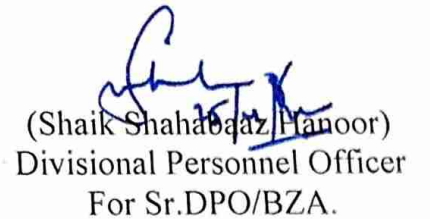 (Shaik Shahabaaz Hanoor)
Divisional Personnel Officer
For Sr.DPO/BZA.